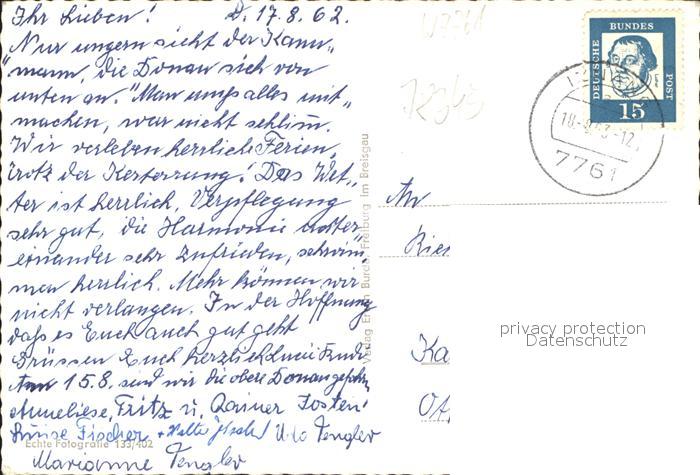 Ihr Lieben! D. 17.8.62.
Nur ungern sieht der Kann„
„mann, die Donau sich von
unten an." Man muß alles mit„
machen, war nicht schlimm.
Wir verleben herrliche Ferien,
trotz der Kenterung! Das Wet„
ter ist herrlich, Verpflegung
sehr gut, die Harmonie unter
einander sehr zufrieden,
man herrlich. Mehr können wir
nicht verlangen. In der Hoffnung
daß es Euch auch gut geht
Grüssen Euch herzlich
Am 15.8. sind wir die obere Donau gefahren
Anneliese, Fritz u. Rainer Josten
Luise Fischer + Udo Tengler
Marianne Tengler
Echte Fotografie 133/402
Verlag Erwin Burda, Freiburg im Breisgau
DEUTSCHE BUNDES POST
15
7761
An
Ka
privacy protection
Datenschutz